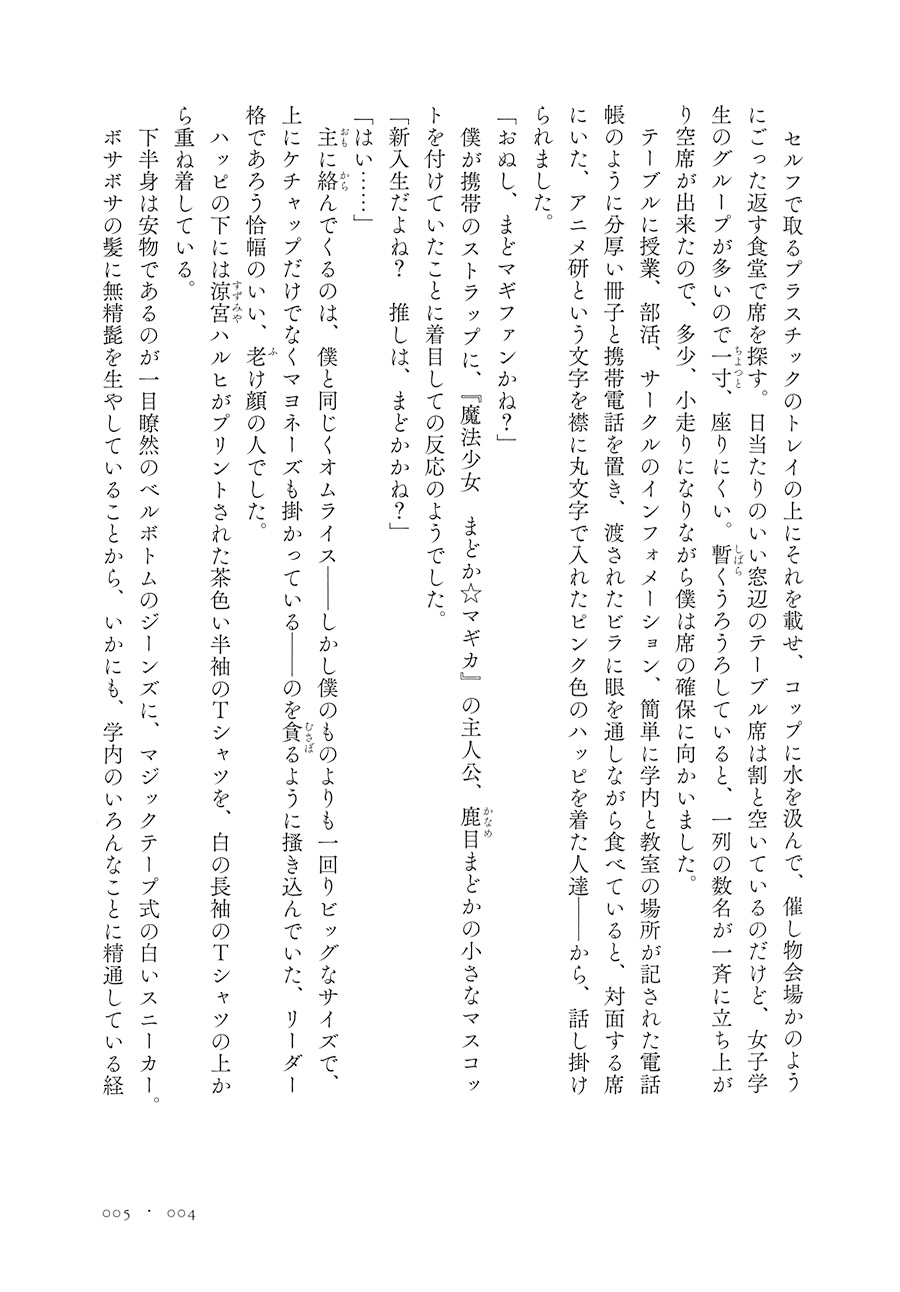 セルフで取るプラスチックのトレイの上にそれを載せ、コップに水を汲んで、催し物会場かのよう
にごった返す食堂で席を探す。日当たりのいい窓辺のテーブル席は割と空いているのだけど、女子学
生のグループが多いので一寸、座りにくい。暫くうろうろしていると、一列の数名が一斉に立ち上が
り空席が出来たので、多少、小走りになりながら僕は席の確保に向かいました。
テーブルに授業、部活、サークルのインフォメーション、簡単に学内と教室の場所が記された電話
帳のように分厚い冊子と携帯電話を置き、渡されたビラに眼を通しながら食べていると、対面する席
にいた、アニメ研という文字を襟に丸文字で入れたピンク色のハッピを着た人達――から、話し掛け
られました。
「おぬし、まどマギファンかね?」
僕が携帯のストラップに、『魔法少女　まどか☆マギカ』の主人公、鹿目まどかの小さなマスコッ
トを付けていたことに着目しての反応のようでした。
「新入生だよね?　推しは、まどかかね?」
「はい……」
主に絡んでくるのは、僕と同じくオムライス――しかし僕のものよりも一回りビッグなサイズで、
上にケチャップだけでなくマヨネーズも掛かっている――のを貪るように掻き込んでいた、リーダー
格であろう恰幅のいい、老け顔の人でした。
ハッピの下には涼宮ハルヒがプリントされた茶色い半袖のTシャツを、白の長袖のTシャツの上か
ら重ね着している。
下半身は安物であるのが一目瞭然のベルボトムのジーンズに、マジックテープ式の白いスニーカー。
ボサボサの髪に無精髭を生やしていることから、いかにも、学内のいろんなことに精通している経
005・004